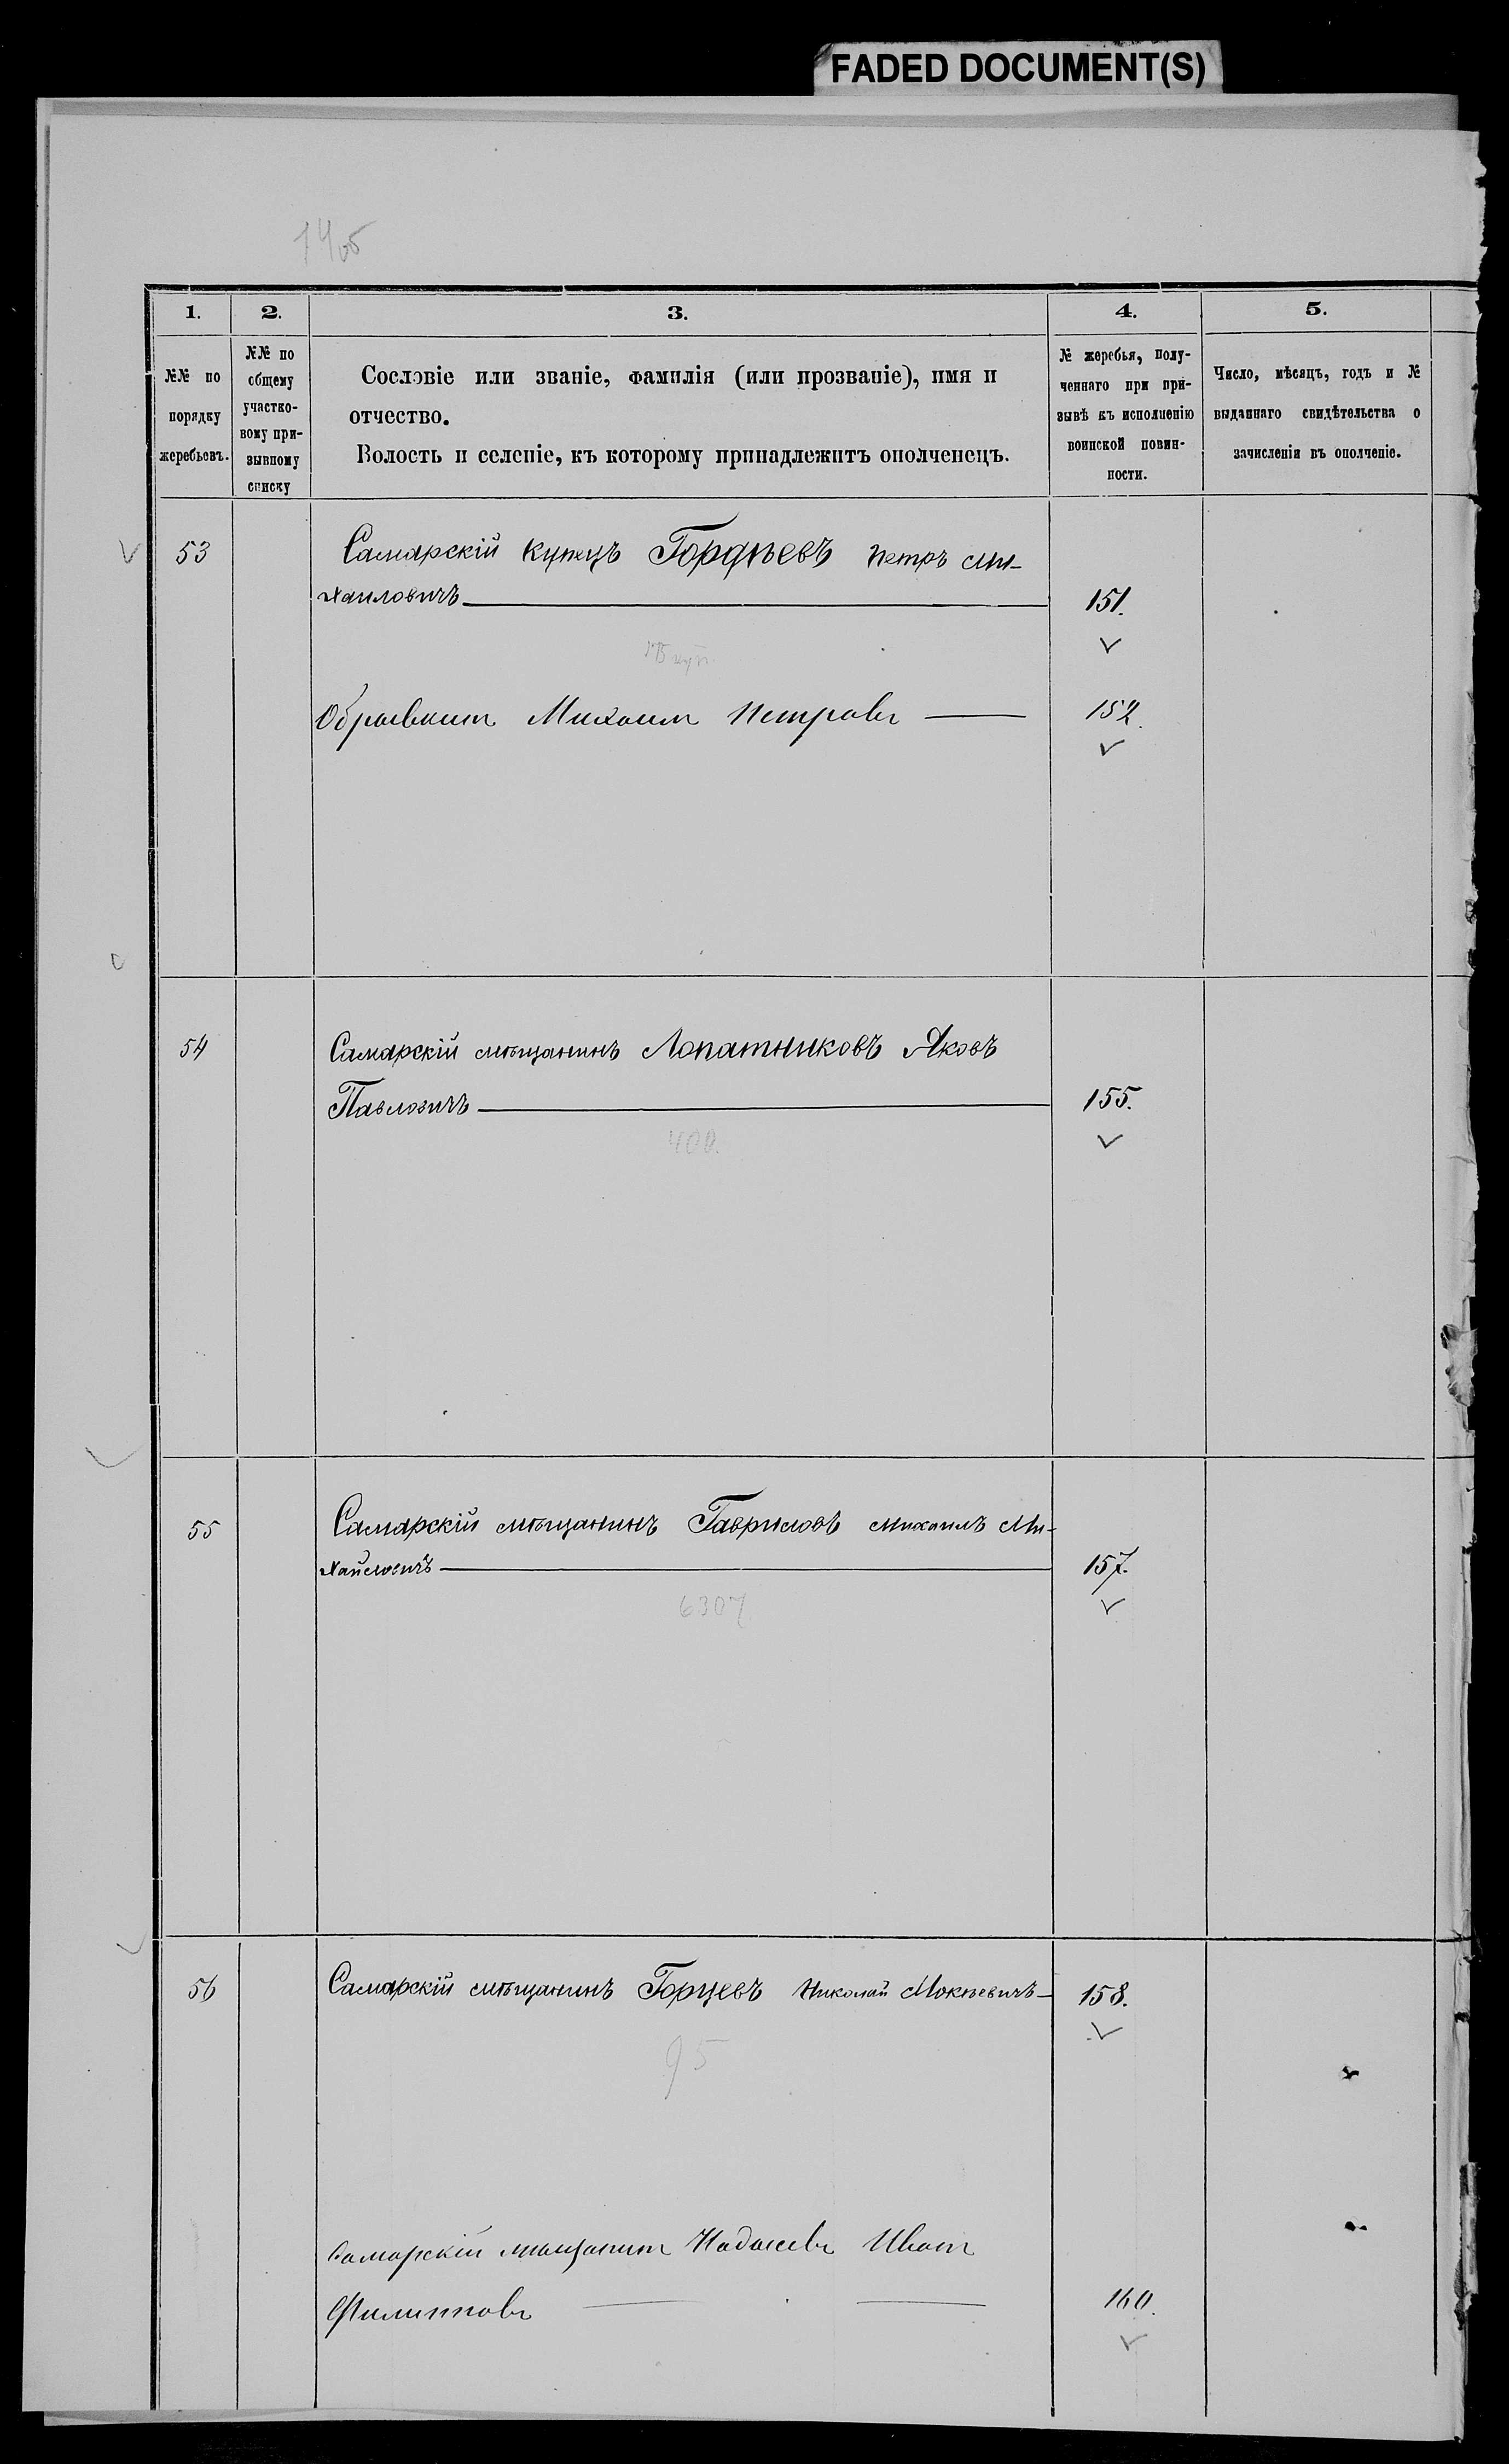 FADED DOCUMENT(S)
1.
2.
3.
4.
5.
№№ по
порядку
жеребьевъ.
№№ по
общему
участко-
вому при-
зывному
списку
Сословіе или званіе, фамилія (или прозваніе), имя и
отчество.
Волость и селеніе, къ которому принадлежитъ ополченецъ.
№ жеребья, полу-
ченнаго при при-
зывѣ къ исполненію
воинской повин-
ности.
Число, мѣсяцъ, годъ и №
выданнаго свидѣтельства о
зачисленіи въ ополченіе.
53
Самарскій купецъ Гордѣевъ Петръ Ми-
хаиловичъ
151.
Михаилъ Петровъ
152.
54
Самарскій мѣщанинъ Лопатниковъ Яковъ
Павловичъ
155.
400.
55
Самарскій мѣщанинъ Гавриловъ Михаилъ Ми-
хайловичъ
157.
6307
56
Самарскій мѣщанинъ Горцевъ Николай Мокѣевичъ
158.
95
Самарскій мѣщанинъ Иванъ
Филипповъ
160.